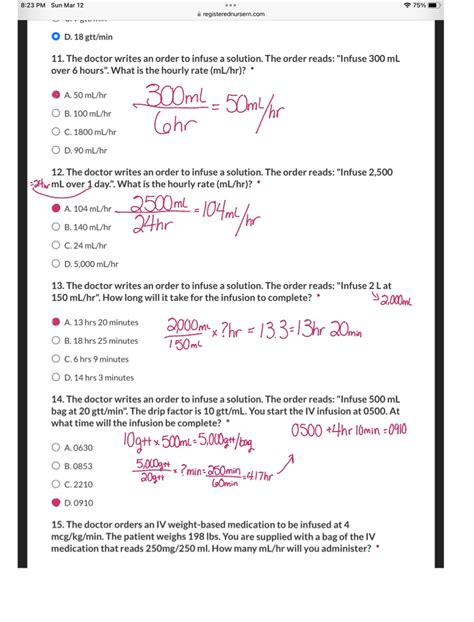 8:23 PM Sun Mar 12
75%
registerednursern.com
D. 18 gtt/min
11. The doctor writes an order to infuse a solution. The order reads: "Infuse 300 mL
over 6 hours". What is the hourly rate (mL/hr)? *
A. 50 mL/hr
300mL
= 50mL/hr
6hr
B. 100 mL/hr
C. 1800 mL/hr
D. 90 mL/hr
12. The doctor writes an order to infuse a solution. The order reads: "Infuse 2,500
=24hr mL over 1 day.". What is the hourly rate (mL/hr)? *
A. 104 mL/hr
2500mL
= 104mL/hr
24hr
B. 140 mL/hr
C. 24 mL/hr
D. 5,000 mL/hr
13. The doctor writes an order to infuse a solution. The order reads: "Infuse 2 L at
150 mL/hr". How long will it take for the infusion to complete? *
2,000mL
A. 13 hrs 20 minutes
2,000mL x ?hr = 13.3=13hr 20min
150mL
B. 18 hrs 25 minutes
C. 6 hrs 9 minutes
D. 14 hrs 3 minutes
14. The doctor writes an order to infuse a solution. The order reads: "Infuse 500 mL
bag at 20 gtt/min". The drip factor is 10 gtt/mL. You start the IV infusion at 0500. At
what time will the infusion be complete? *
0500 +4hr 10min =0910
10gtt x 500mL = 5,000gtt/bag
A. 0630
B. 0853
5,000gtt x ?min= 250min =4.17hr
20gtt
60min
C. 2210
D. 0910
15. The doctor orders an IV weight-based medication to be infused at 4
mcg/kg/min. The patient weighs 198 lbs. You are supplied with a bag of the IV
medication that reads 250mg/250 ml. How many mL/hr will you administer? *